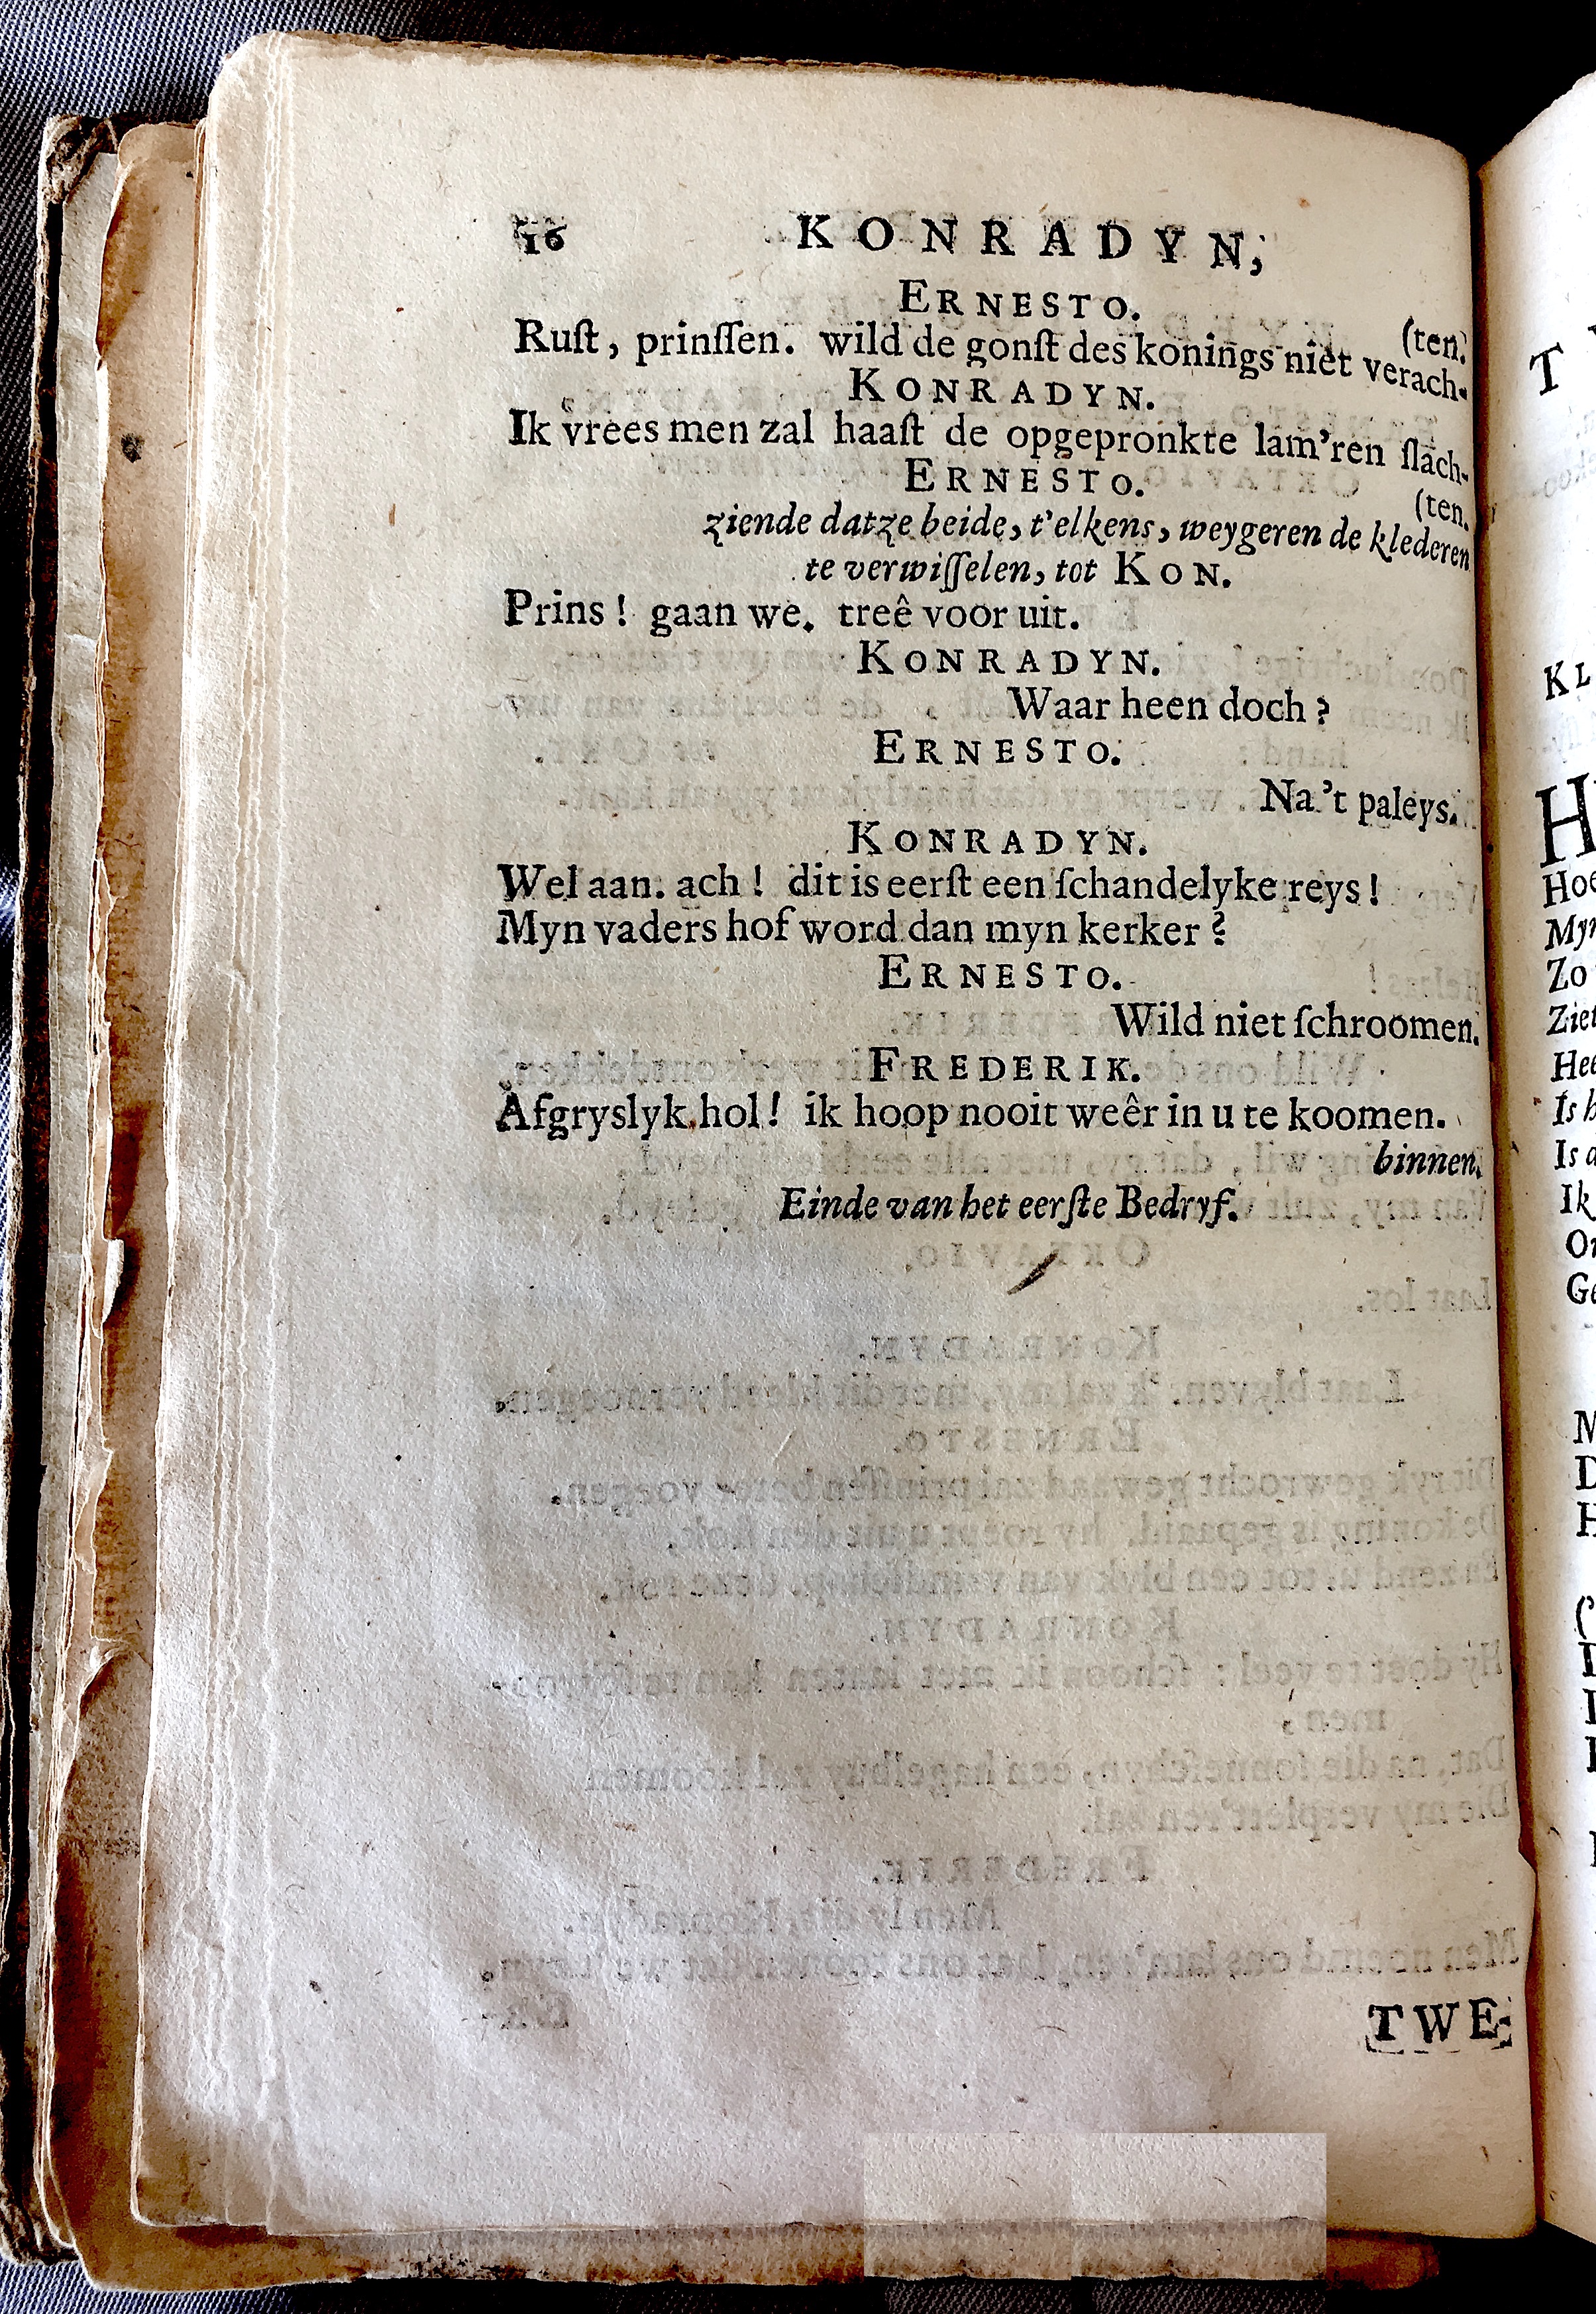 16 KONRADYN,
ERNESTO.
Ruſt, prinſſen. wild de gonſt des konings niet verach-
(ten.
KONRADYN.
Ik vrees men zal haaſt de opgepronkte lam'ren ſlach-
(ten.
ERNESTO.
ziende datze beide, t'elkens, weygeren de klederen
te verwiſſelen, tot KON.
Prins! gaan we. treê voor uit.
KONRADYN.
Waar heen doch?
ERNESTO.
Na 't paleys.
KONRADYN.
Wel aan. ach! dit is eerſt een ſchandelyke reys!
Myn vaders hof word dan myn kerker?
ERNESTO.
Wild niet ſchroomen.
FREDERIK.
Afgryslyk hol! ik hoop nooit weêr in u te koomen.
binnen.
Einde van het eerſte Bedryf.
TWE-